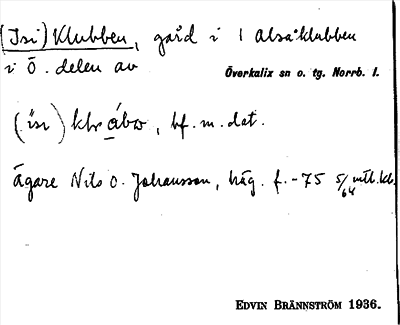 (Isi) Klubben, gård i 1 Alsåklubben
i Ö. delen av
Överkalix sn o. tg. Norrb. l.
(isi) , bf. m. dat.
Ägare Nils O. Johansson, häg. f. -75 5/64 mtl.
EDVIN BRÄNNSTRÖM 1936.